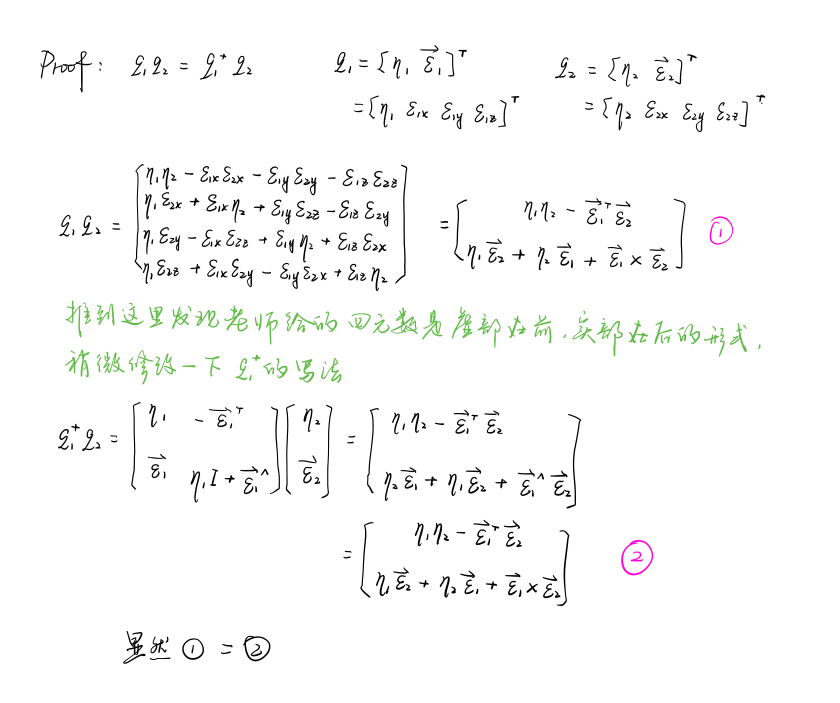 Proof: q₁q₂ = q₁⁺ q₂    q₁ = [η₁ ε⃗₁]ᵀ    q₂ = [η₂ ε⃗₂]ᵀ
= [η₁ ε₁ₓ ε₁y ε₁z]ᵀ    = [η₂ ε₂ₓ ε₂y ε₂z]ᵀ
q₁q₂ = [η₁η₂ - ε₁ₓε₂ₓ - ε₁yε₂y - ε₁zε₂z
η₁ε₂ₓ + ε₁ₓη₂ + ε₁yε₂z - ε₁zε₂y
η₁ε₂y - ε₁ₓε₂z + ε₁yη₂ + ε₁zε₂ₓ
η₁ε₂z + ε₁ₓε₂y - ε₁yε₂ₓ + ε₁zη₂]
= [η₁η₂ - ε⃗₁ᵀε⃗₂
η₁ε⃗₂ + η₂ε⃗₁ + ε⃗₁ × ε⃗₂] ①
推到这里发现老师给的四元数是虚部在前,实部在后的形式,
稍微修改一下 q₁⁺的写法
q₁⁺q₂ = [η₁ -ε⃗₁ᵀ
ε⃗₁ η₁I + ε⃗₁^] [η₂
ε⃗₂] = [η₁η₂ - ε⃗₁ᵀε⃗₂
η₂ε⃗₁ + η₁ε⃗₂ + ε⃗₁^ε⃗₂]
= [η₁η₂ - ε⃗₁ᵀε⃗₂
η₁ε⃗₂ + η₂ε⃗₁ + ε⃗₁×ε⃗₂] ②
显然 ① = ②